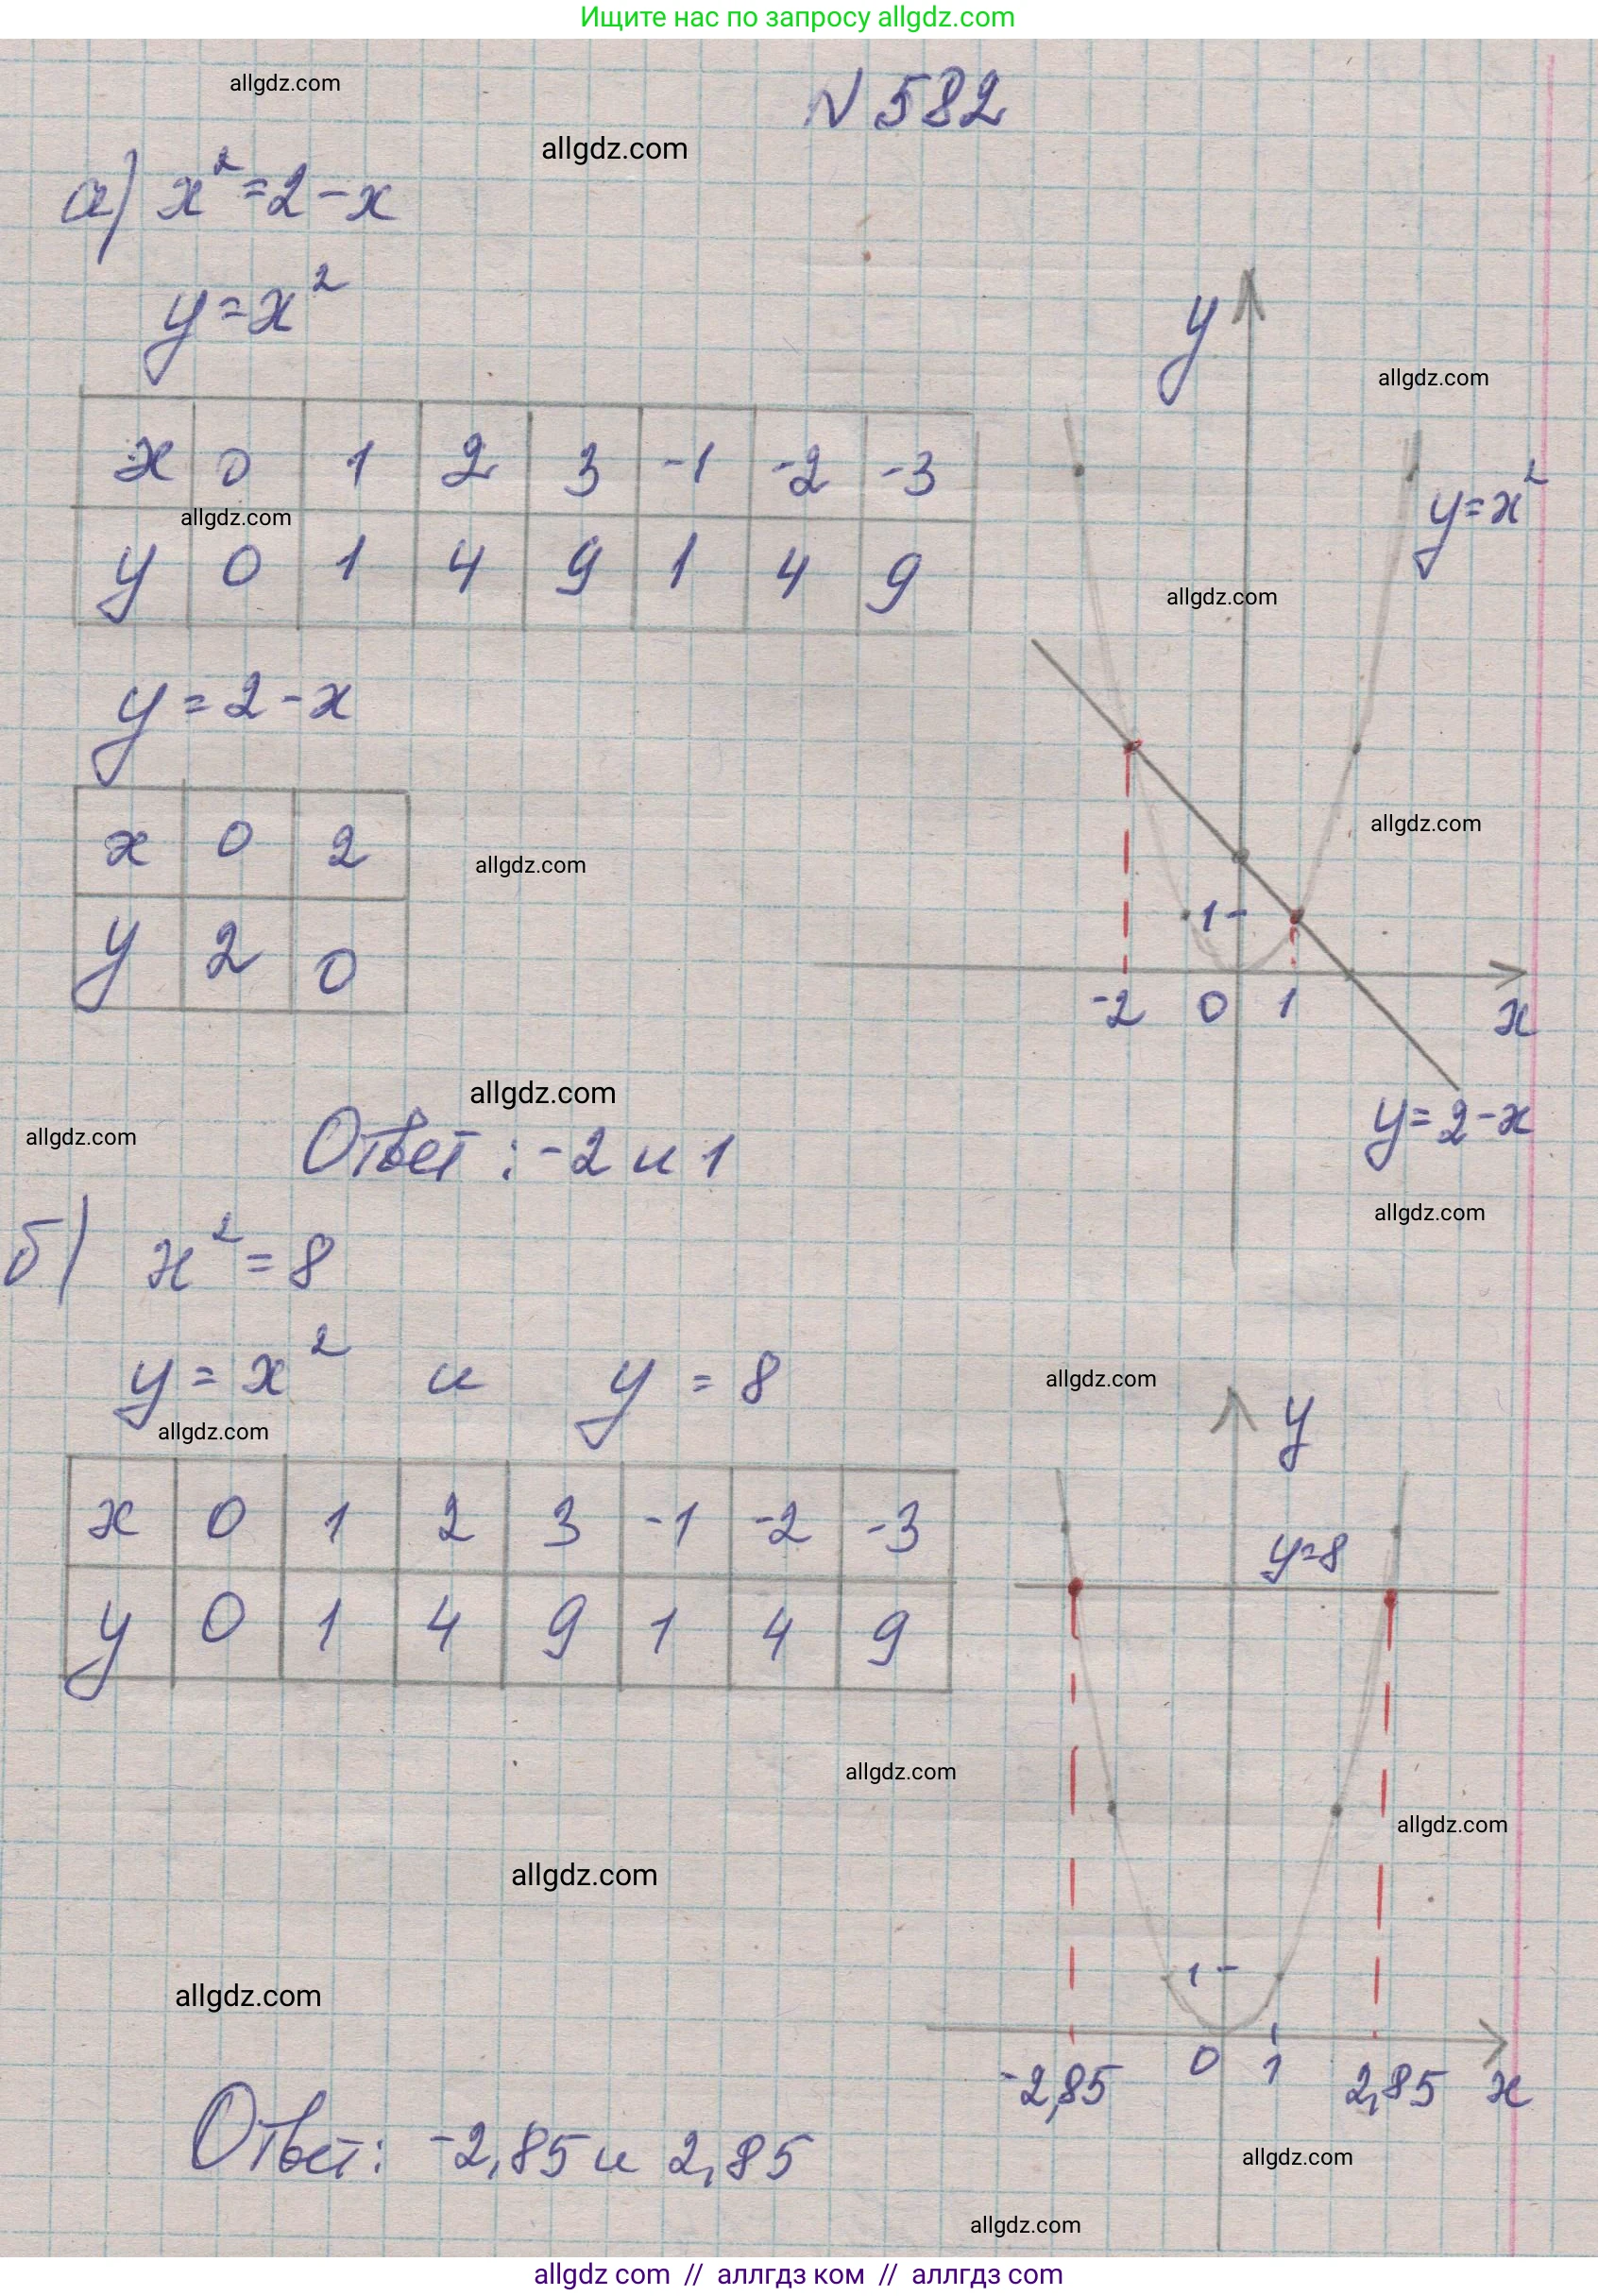 Ищите нас по запросу allgdz.com
allgdz.com
N 582
allgdz.com
а) x²=2-x
y=x²
y
allgdz.com
x 0 1 2 3 -1 -2 -3
y=x²
allgdz.com
y 0 1 4 9 1 4 9
allgdz.com
y=2-x
x 0 2
allgdz.com
allgdz.com
y 2 0
1
-2 0 1 x
allgdz.com
y=2-x
allgdz.com
Ответ: -2 и 1
allgdz.com
б) x²=8
y=x² и y=8
allgdz.com
y
allgdz.com
x 0 1 2 3 -1 -2 -3
y=8
y 0 1 4 9 1 4 9
allgdz.com
allgdz.com
allgdz.com
1
allgdz.com
-2,85 0 1 2,85 x
Ответ: -2,85 и 2,85
allgdz.com
allgdz.com
allgdz com // аллгдз ком // аллгдз com